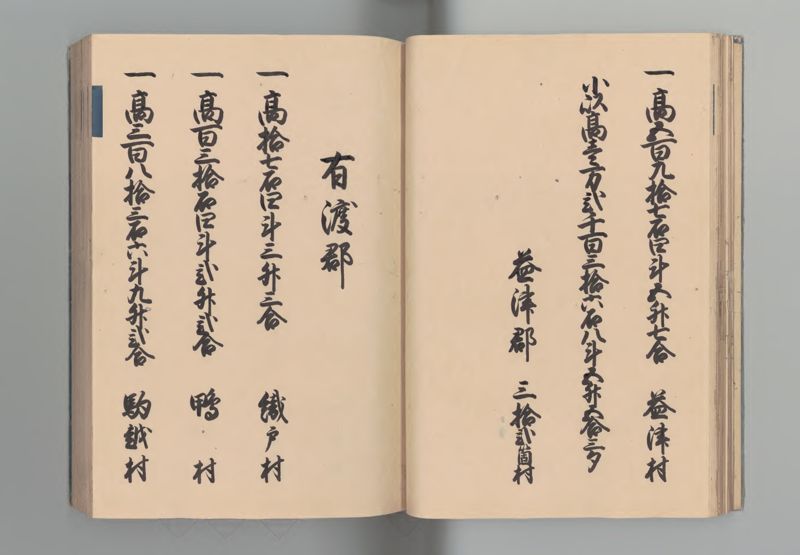 一 高五百九拾七石四斗五升七合 益津村
小以高壱万弐千百三拾六石八斗五升五合三夕
益津郡 三拾弐箇村
有渡郡
一 高拾七石四斗三升三合 織戸村
一 高百三拾石四斗弐升弐合 鴨村
一 高三百八拾三石六斗九升弐合 駒越村